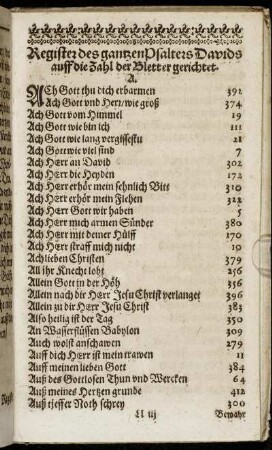 Register des gantzen Psalters Davids
auff die Zahl der Bletter gerichtet.
A.
ACh Gott thu dich erbarmen 392
Ach Gott vnd Herr/wie groß 374
Ach Gott vom Himmel 19
Ach Gott wie bin ich 111
Ach Gott wie lang vergissestu 21
Ach Gott wie viel sind 7
Ach HErr an David 302
Ach HErr die Heyden 172
Ach HErr erhör mein sehnlich Bitt 310
Ach HErr erhör mein Flehen 322
Ach HErr Gott wir haben 5
Ach HErr mich armen Sünder 380
Ach HErr mit deiner Hülff 170
Ach HErr straff mich nicht 19
Ach lieben Christen 379
All ihr Knecht lobt 256
Allein Gott in der Höh 356
Allein nach dir HErr Jesu Christ verlanget 396
Allein zu dir HErr Jesu Christ 383
Also heilig ist der Tag 350
An Wasserflüssen Babylon 309
Auch wolst anschawen 279
Auff dich HErr ist mein trawen 11
Auff meinen lieben Gott 384
Auß des Gottlosen Thun vnd Wercken 64
Auß meines Hertzen grunde 412
Auß tieffer Noth schrey 300
Ll iij Bewahr